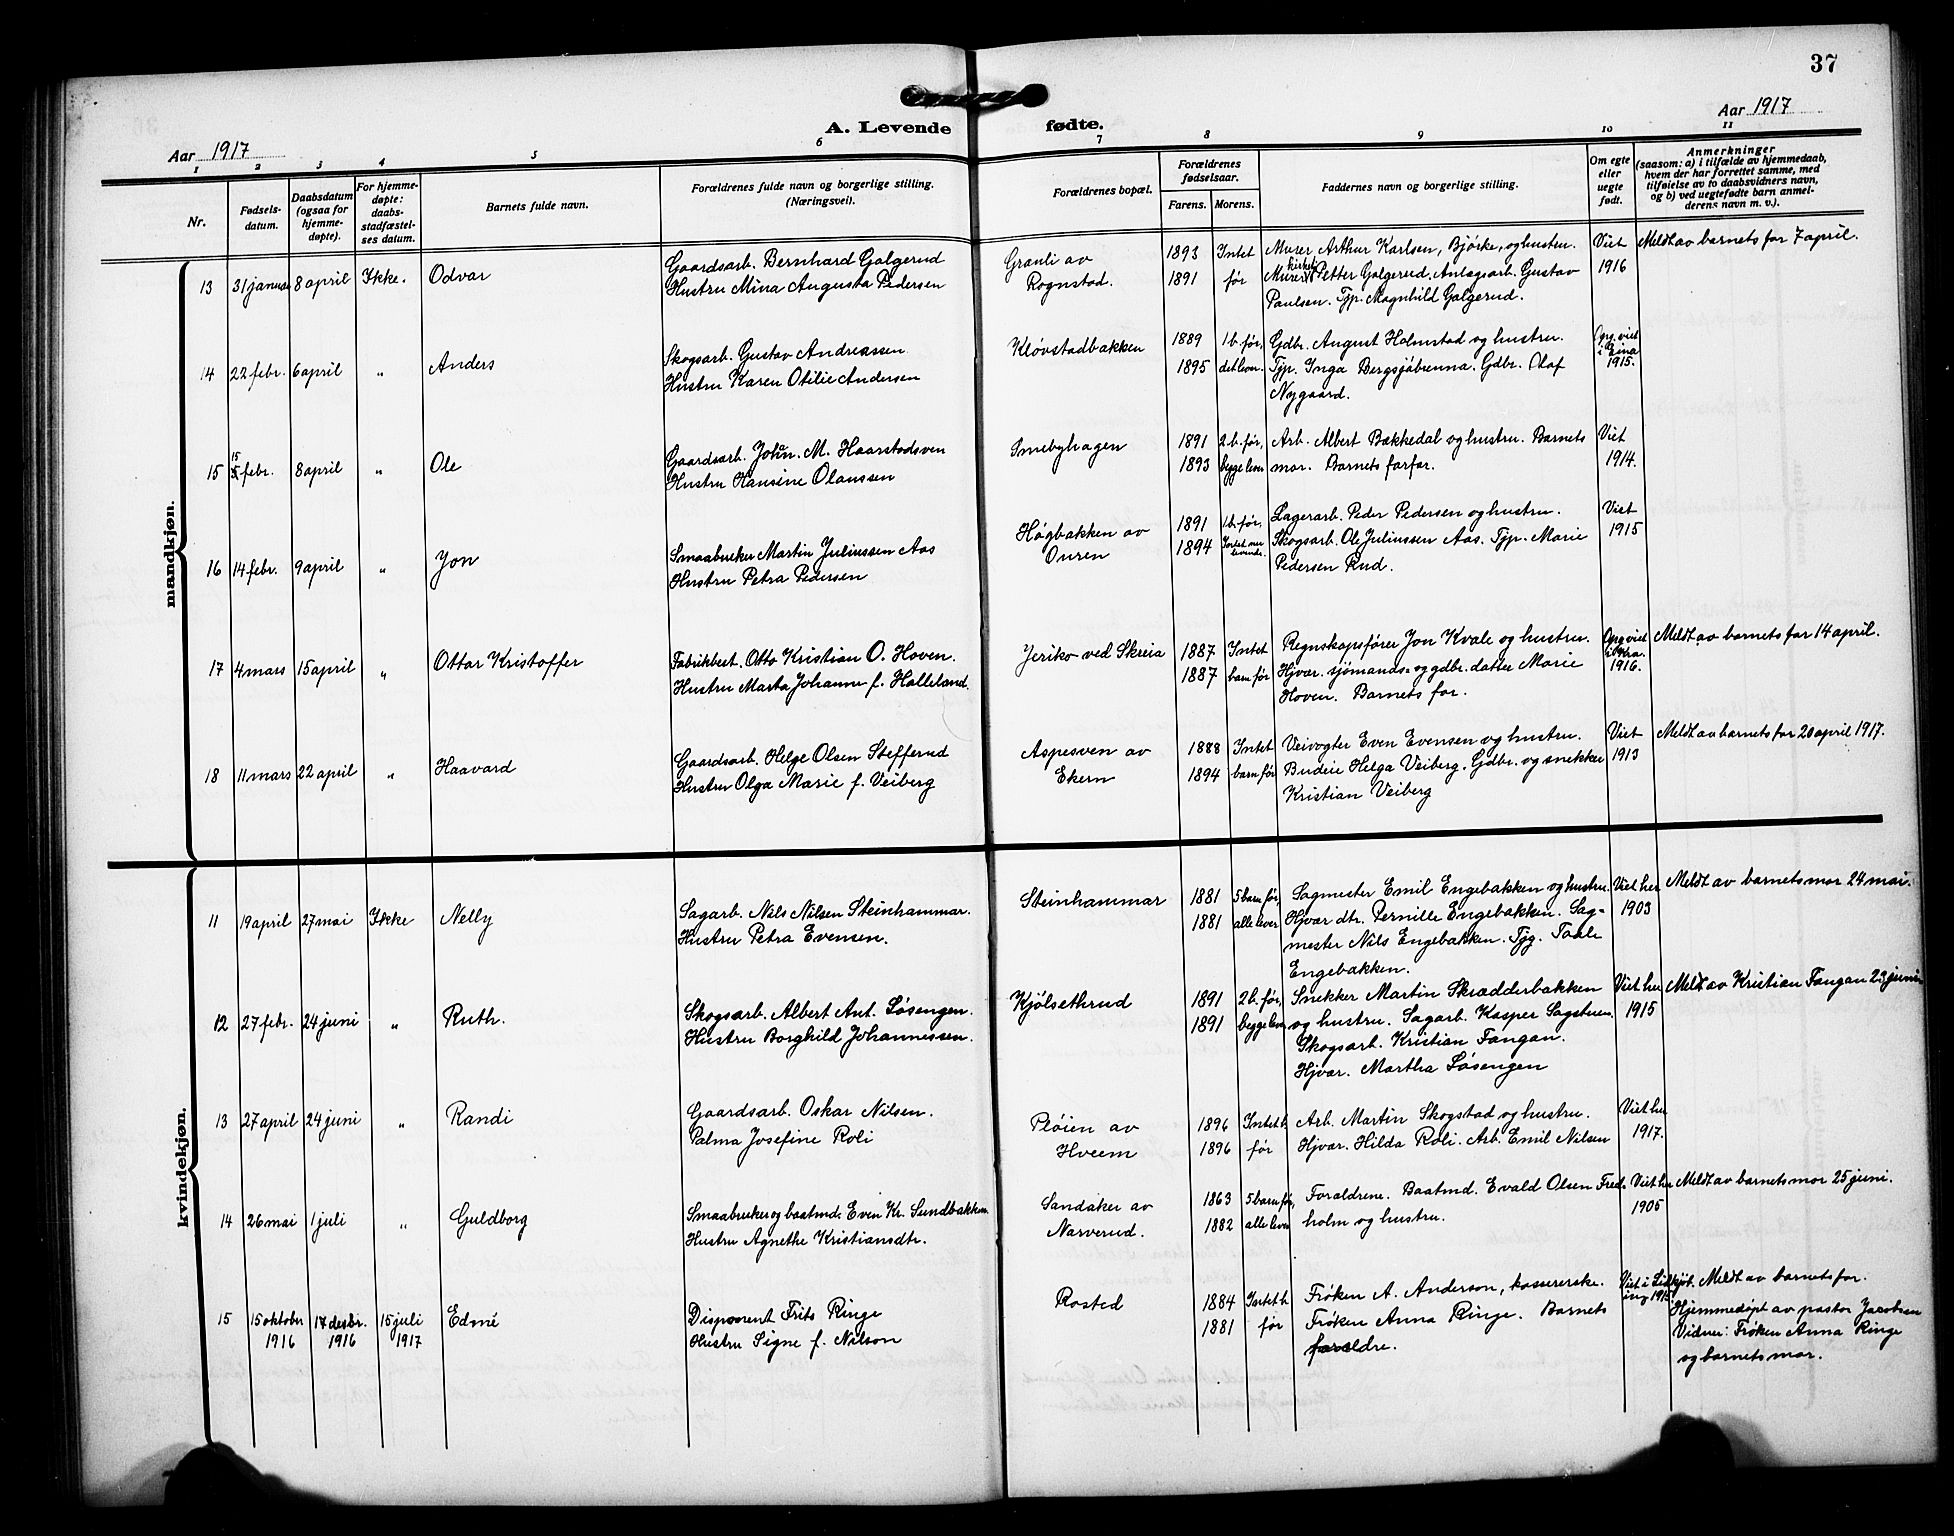 37
A. Levende fødte.
Aar 1917
Aar 1917
1 2 3 4 5 6 7 8 9 10 11
Nr.
Fødsels-
datum.
Daabsdatum
(ogsaa for
hjemme-
døpte).
For hjemme-
døpte:
daabs-
stadfæstel-
ses datum.
Barnets fulde navn.
Forældrenes fulde navn og borgerlige stilling.
(Næringsvei).
Forældrenes bopæl.
Forældrenes
fødselsaar.
Farens. Morens.
Faddernes navn og borgerlige stilling.
Om egte
eller
uegte
født.
Anmerkninger
(saasom: a) i tilfælde av hjemmedaab,
hvem der har forrettet samme, med
tilføielse av to daabsvidners navn,
og b) ved uegtefødte barn anmel-
derens navn m. v.).
mandkjøn.
13 31 januar 8 april Ikke. Odvar
Gaardsarb. Bernhard Galgerud
Hustru Mina Augusta Pedersen
Granli av
Rognstad.
1893 Intet
1891 før
Murer Arthur Karlsen, Bjørke, og hustru.
Petter Galgerud. Anlagsarb. Gustav
Paulsen. Tjp. Magnhild Galgerud.
Viet
1916
Meldt av barnets far 7 april.
14 22 febr. 6 april " Anders
Skogsarb. Gustav Andreassen
Hustru Karen Otilie Andersen
Kløvstadbakken
1889 1 b. før,
1895 det lever.
Gdbr. August Holmstad og hustru.
Tjp. Inga Bergsjøbrenna. Gdbr. Olaf
Nygaard.
Opg. viet
i Eina
1915.
15 15 febr. 8 april " Ole
Gaardsarb. Johan. M. Haarstadsven
Hustru Hansine Olaussen
Smebyhagen
1891 2 b. før,
1893 begge lever
Arb. Albert Bækkedal og hustru. Barnets
mor. Barnets farfar.
Viet
1914.
16 14 febr. 9 april " Jon
Smaabruker Martin Juliussen Aas
Hustru Petra Pedersen
Høgbakken av
Ouren
1891 1 b. før,
1894 Intet nu
levende.
Lagerarb. Peder Pedersen og hustru.
Skogsarb. Ole Juliussen Aas. Tjp. Marie
Pedersen Rud.
Viet
1915
17 4 mars 15 april " Ottar Kristoffer
Fabrikbest. Otto Kristian O. Hoven.
Hustru Marta Johanne f. Halleland.
Jeriko ved Skreia
1887 Intet
1887 barn før
Regnskapsfører Jon Kvale og hustru.
Hjvær. sjømands- og gdbr. datter Marie
Hoven. Barnets far.
Opg. viet
i Kra.
1916.
Meldt av barnets far 14 april.
18 11 mars 22 april " Haavard
Gaardsarb. Helge Olsen Stefferud
Hustru Olga Marie f. Veiberg
Aspesven av
Ekern
1888 Intet
1894 barn før
Veivogter Even Evensen og hustru.
Budeie Helga Veiberg. Gdbr. og snekker
Kristian Veiberg
Viet
1913
Meldt av barnets far 20 april 1917.
kvindekjøn.
11 19 april 27 mai Ikke Nelly
Sagarb. Nils Nilsen Steinhammar.
Hustru Petra Evensen.
Steinhammar
1881 5 barn før,
1881 alle lever
Sagmester Emil Engebakken og hustru.
Hjvær dtr. Pernille Engebakken. Sag-
mester Nils Engebakken. Tjg. Taale
Engebakken.
Viet her
1903
Meldt av barnets mor 24 mai.
12 27 febr. 24 juni " Ruth.
Skogsarb. Albert Ant. Løsengen.
Hustru Borghild Johannessen.
Kjølsethrud
1891 2 b. før,
1891 begge lever
Snekker Martin Skrædderbakken
og hustru. Sagarb. Kasper Sagstuen.
Skogsarb. Kristian Fangan.
Hjvær. Martha Løsengen
Viet her
1915
Meldt av Kristian Fangan 23 juni
13 27 april 24 juni " Randi
Gaardsarb. Oskar Nilsen.
Palma Josefine Roli
Pløien av
Hveem
1896 Intet b.
1896 før
Arb. Martin Skogstad og hustru.
Hjvær. Hilda Roli. Arb. Emil Nilsen
Viet her
1917.
14 26 mai 1 juli " Guldborg
Smaabruker og baatmd. Even Kr. Sundbakken.
Hustru Agnethe Kristiansdtr.
Sandaker av
Narverud.
1863 5 barn før,
1882 alle lever
Forældrene. Baatmd. Evald Olsen Fred-
holm og hustru.
Viet her
1905
Meldt av barnets mor 25 juni.
15 15 oktober 17 desbr. 15 juli Edmé
1916 1916 1917
Disponent Frits Ringe
Hustru Signe f. Nilson
Rosted
1884 Intet b.
1881 før
Frøken A. Anderson, kassererske.
Frøken Anna Ringe. Barnets
forældre.
Viet i Lidkjöp-
ing 1915
Meldt av barnets far.
Hjemmedøpt av pastor Jacobsen
Vidner: Frøken Anna Ringe
og barnets mor.